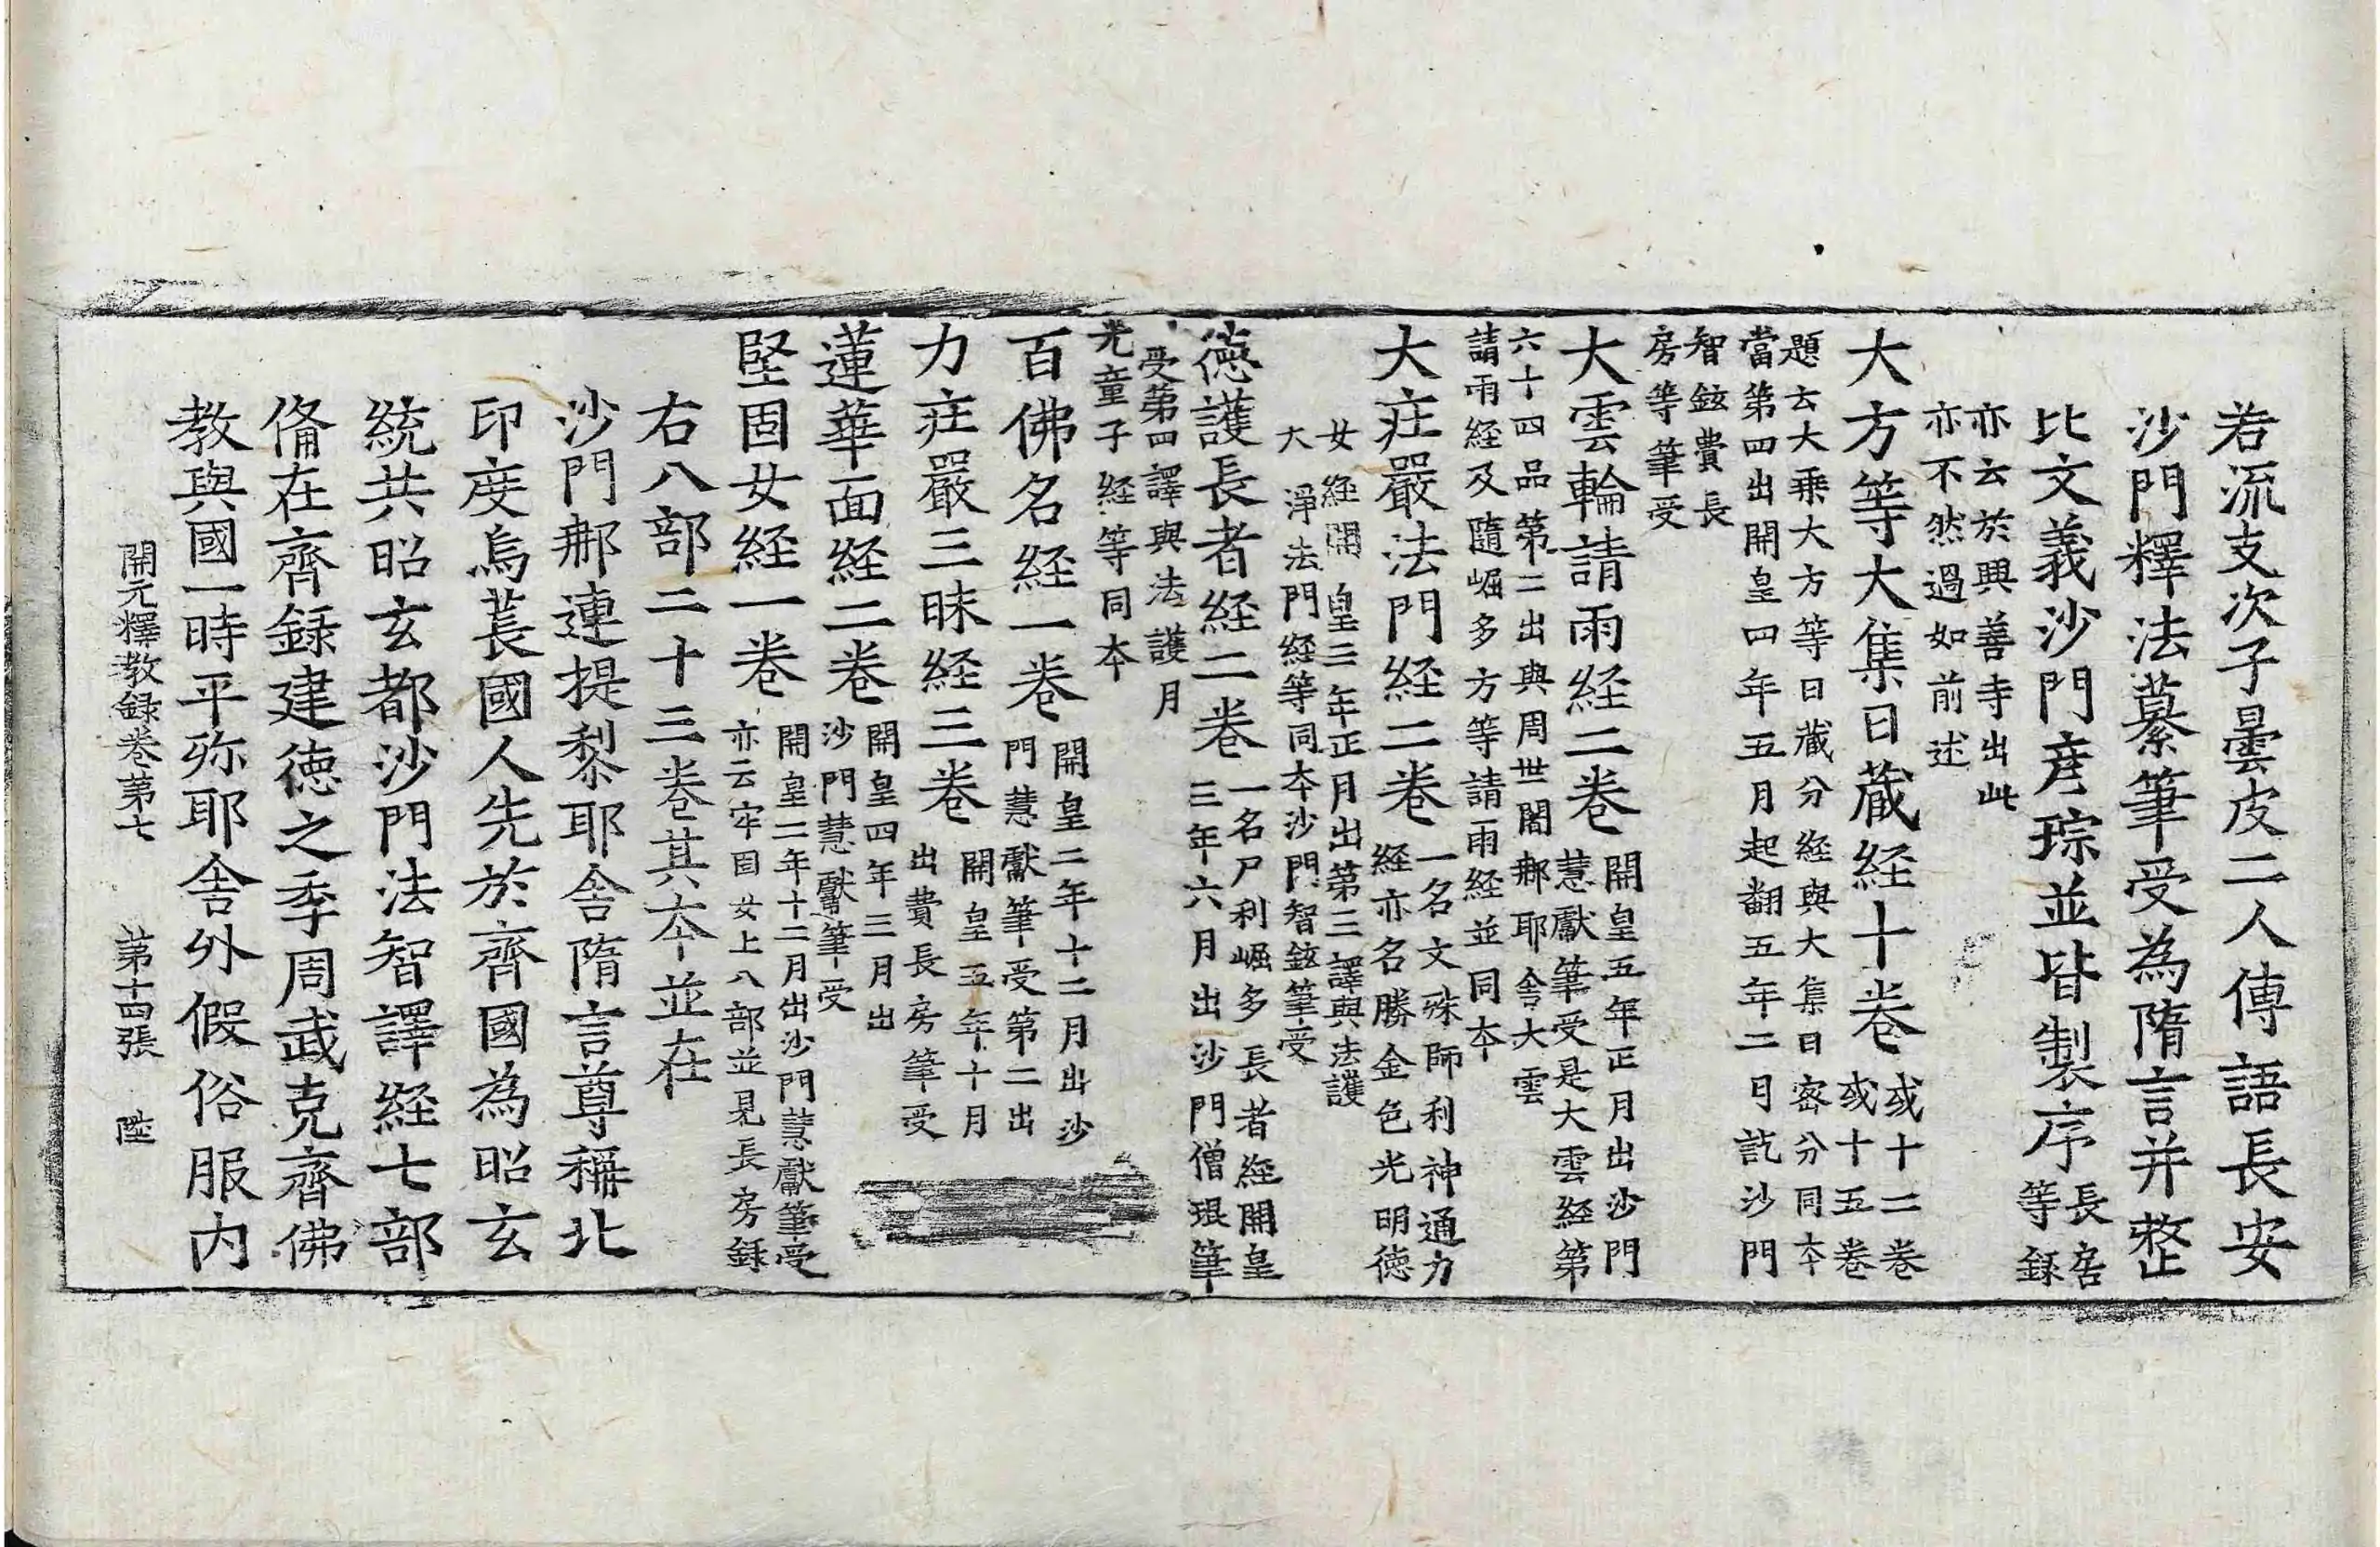 若流支次子曇皮二人傳語長安
沙門釋法纂筆受為隋言并整
比文義沙門彦琮並皆製序
長房
等録
亦云於興善寺出此
亦不然過如前述
大方等大集日蔵経十巻
或十二巻
或十五巻
題云大乗大方等日蔵分経與大集日宻分同夲
當第四出開皇四年五月起翻五年二月訖沙門
智鉉費長
房等筆受
大雲輪請雨経二巻
開皇五年正月出沙門
慧獻筆受是大雲経第
六十四品第二出與周世闍那耶舍大雲
請雨経及隨崛多方等請雨経並同夲
大荘嚴法門経二巻
一名文殊師利神通力
経亦名勝金色光明徳
女経開皇三年正月出第三譯與法護
大淨法門経等同夲沙門智鉉筆受
徳護長者経二巻
一名尸利崛多長者経開皇
三年六月出沙門僧琨筆
受第四譯與法護月
光童子経等同夲
百佛名経一巻
開皇二年十二月出沙
門慧獻筆受第二出
力荘嚴三昧経三巻
開皇五年十月
出費長房筆受
蓮華面経二巻
開皇四年三月出
沙門慧獻筆受
堅固女経一巻
開皇二年十二月出沙門慧獻筆受
亦云牢固女上八部並見長房録
右八部二十三巻其夲並在
沙門那連提黎耶舍隋言尊稱北
印度烏萇國人先於齊國為昭玄
統共昭玄都沙門法智譯経七部
俻在齊録建徳之季周武克齊佛
教與國一時平弥耶舍外假俗服内
開元釋教録巻第七　第十四張　陞